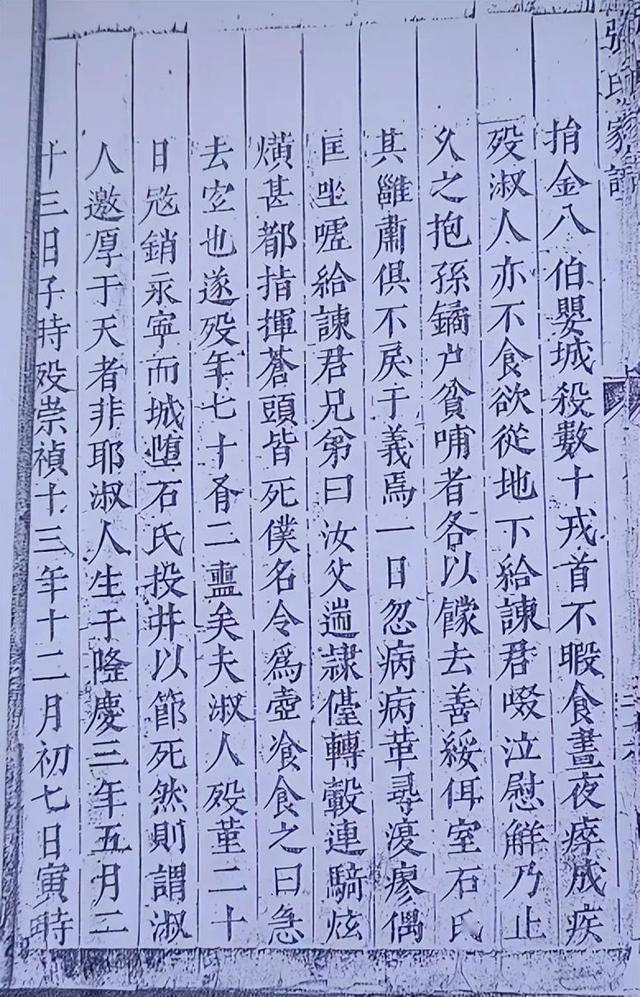 張氏家譜
捐金八伯嬰城殺數十戎首不暇食晝夜瘁成疾
歿淑人亦不食欲從地下給諫君啜泣慰觧乃止
乆之抱孫鐍户貧哺者各以饛去善綏佴室石氏
其雝肅俱不戾于義焉一日忽病病革尋瘳偶
匡坐嘑給諫君兄弟曰汝父遄隷僮轉轂連騎炫
熿甚都指揮蒼頭皆死僕名令爲壺飡食之曰急
去空也遂歿年七十有二矣夫淑人歿菫二十
日冦銷永寧而城墮石氏投井以節死然則謂淑
人邀厚于天者非耶淑人生于隆慶三年五月二
十三日子時歿崇禎十三年十二月初七日寅時